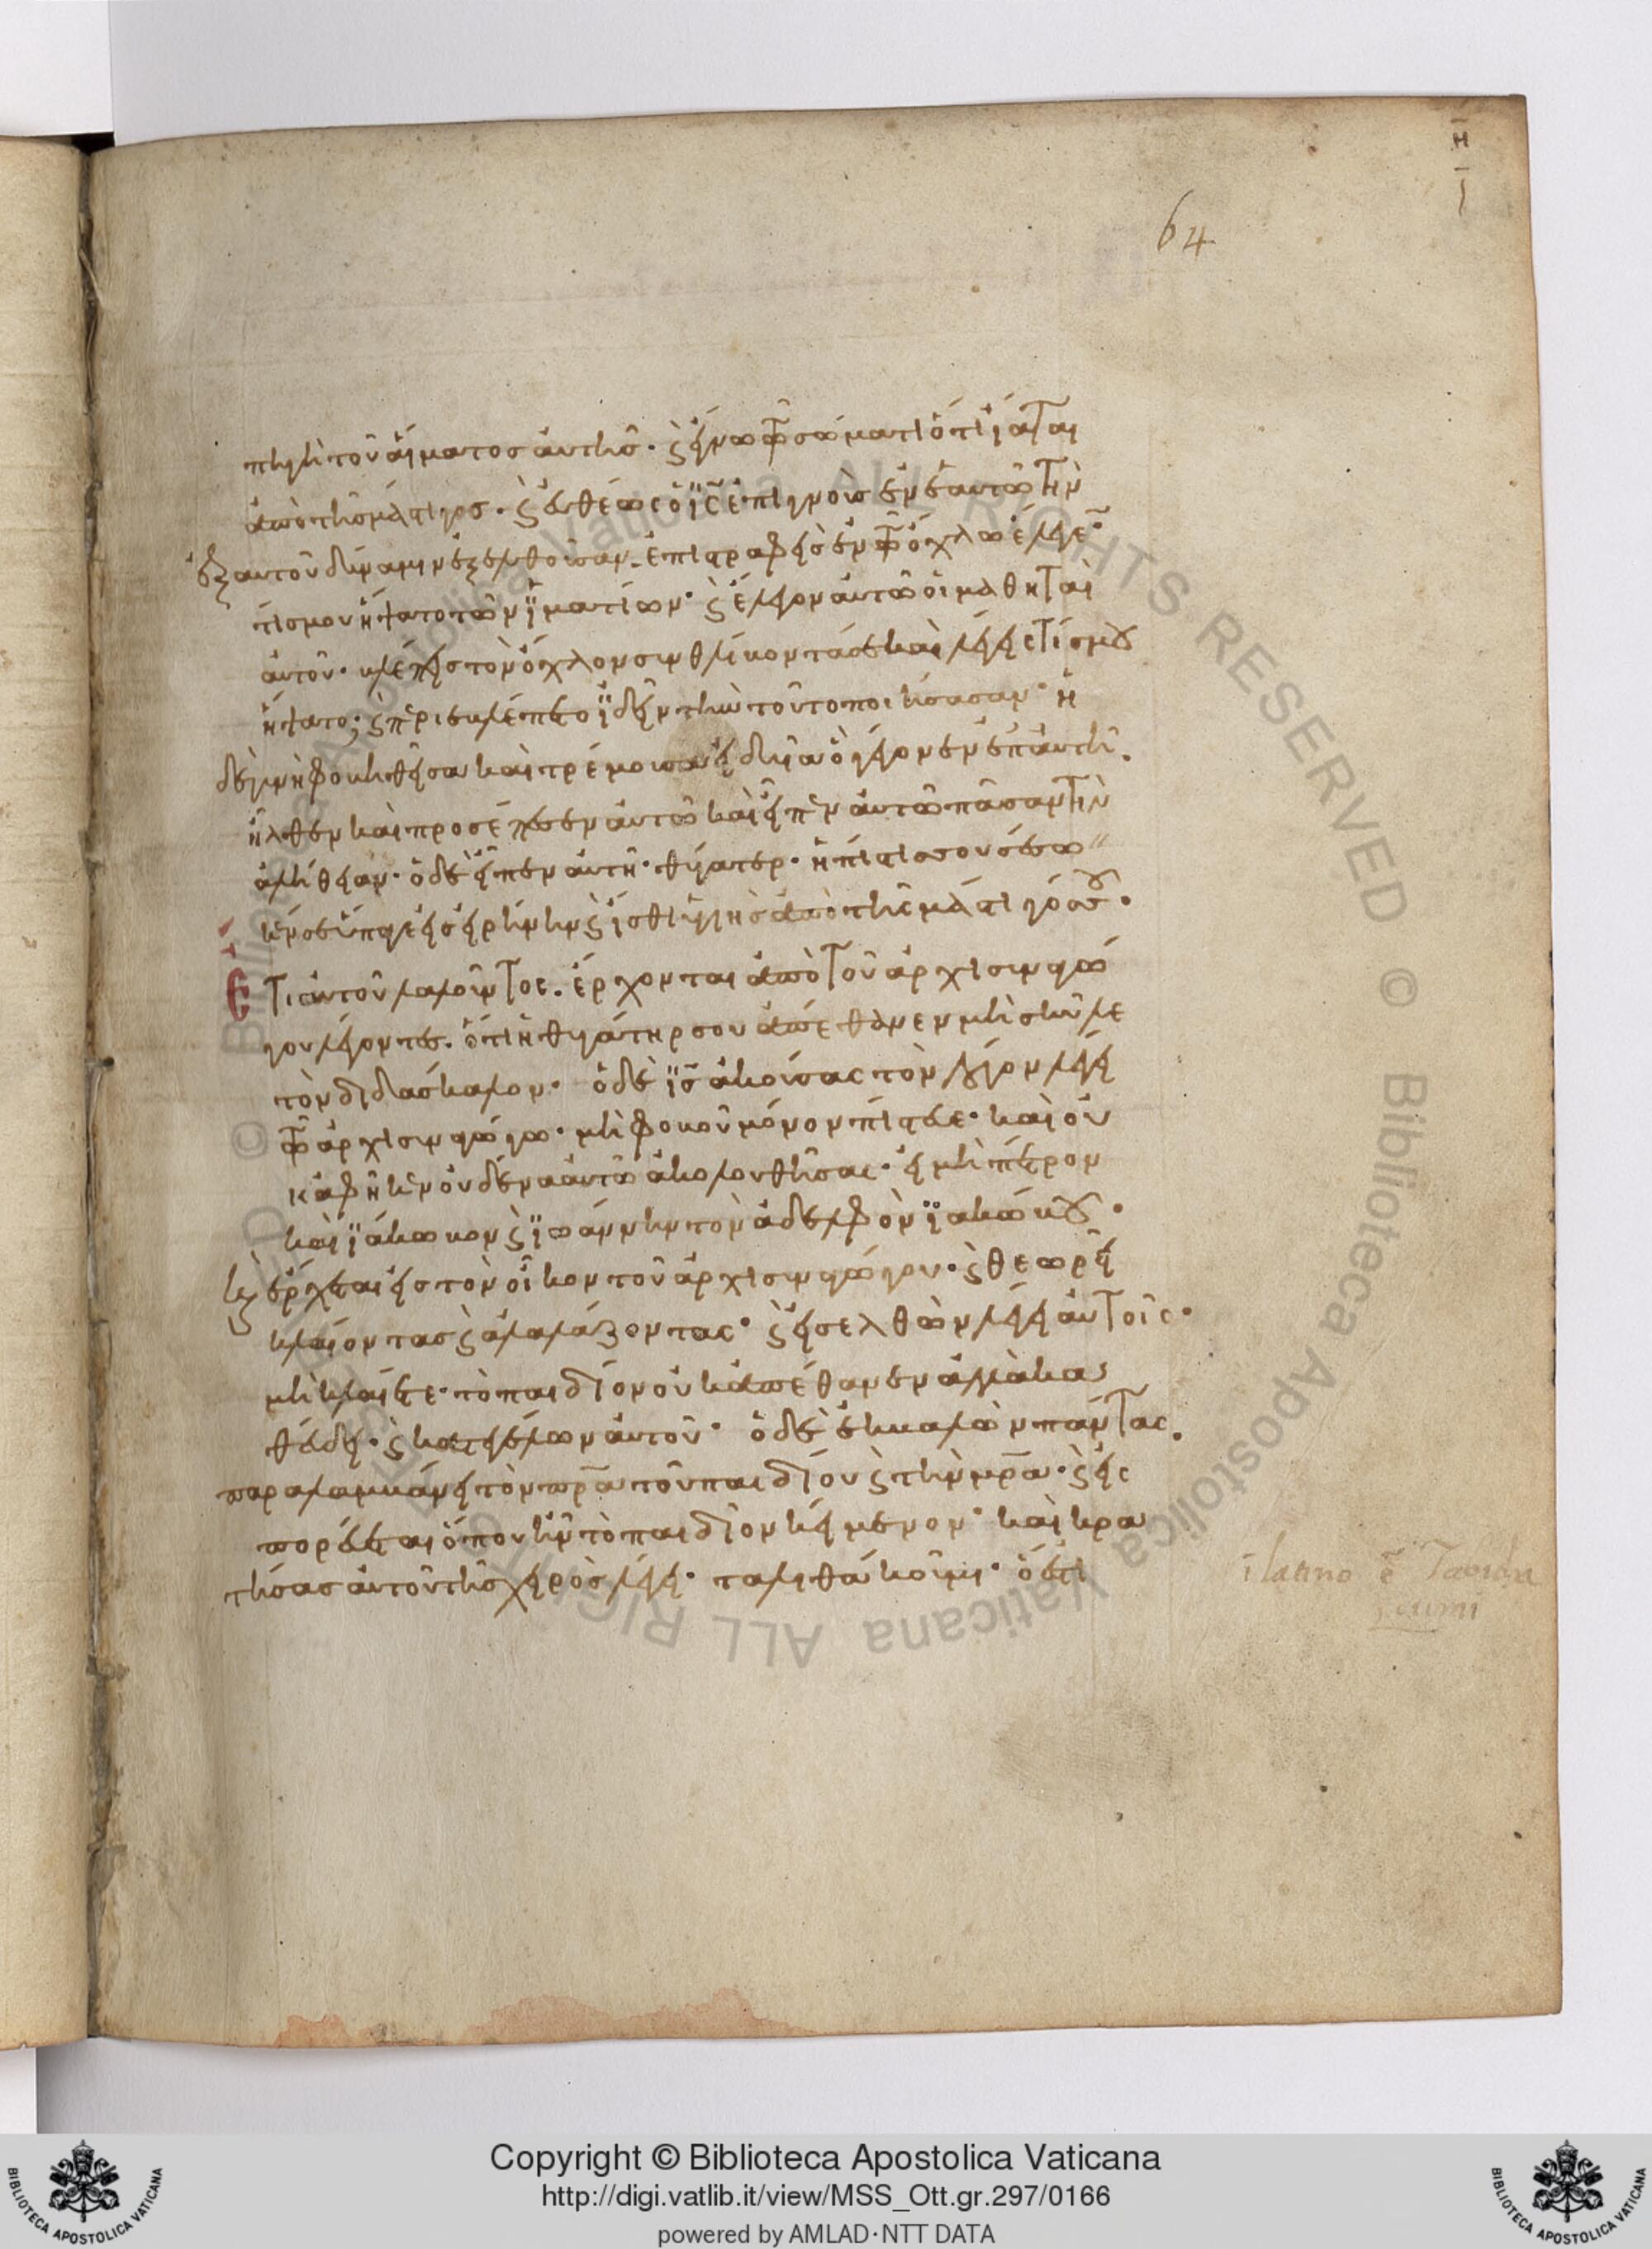 η
ι
64
πηγὴ τοῦ αἵματος αὐτῆς· ϗ ἔγνω τῷ σώματι ὅτι ἴαται
ἀπὸ τῆς μάστιγος· ϗ εὐθέως ὁ ϊς ἐπιγνοὺς ἐν ἑαυτῷ τὴν
ἐξ αυτοῦ δύναμιν ἐξελθοῦσαν. ἐπιστραφεὶς ἐν τῷ ὄχλω ἔλεγε
τίς μου ἥψατο τῶν ϊματίων· ϗ ἔλεγον αὐτῶ οἱ μαθηταὶ
αὐτοῦ· βλέπεις τὸν ὄχλον συνθλίβοντά σε καὶ λέγεις τίς μου
ἥψατο; ϗ περιεβλέπετο ϊδεῖν τὴν τοῦτο ποιήσασαν· ἡ
δὲ γυνὴ φοβηθεῖσα καὶ τρέμουσα εἰδυῖα ὃ γέγονεν ἐπ αὐτῆ.
ἦλθεν καὶ προσέπεσεν αὐτῶ καὶ εἶπεν αὐτῶ πᾶσαν τὴν
ἀλήθειαν· ὁ δὲ εἶπεν αὐτῆ· θύγατερ· ἡ πίστις σου σέσω
κέν σε ὕπαγε εἰς εἰρήνην ϗ ἴσθι ὑγιὴς ἀπὸ τῆς μάστιγός σου·
Ἔτι αὐτοῦ λαλοῦντος. ἔρχονται ἀπὸ τοῦ ἀρχισυναγώ
γου λέγοντες. ὅτι ἡ θυγάτηρ σου ἀπέθανεν μὴ σκύλε
τὸν διδάσκαλον· ὁ δὲ ϊς ἀκούσας τὸν λόγον λέγει
τῷ ἀρχισυναγώγω· μὴ φοβοῦ μόνον πίστευε· καὶ οὐ
κ ἀφῆκεν οὐδένα αὐτῶ ἀκολουθῆσαι· εἰ μὴ πέτρον
καὶ ϊάκωβον ϗ ϊωάννην τὸν ἀδελφὸν ϊακώβου·
καὶ ἔρχεται εἰς τὸν οἶκον τοῦ ἀρχισυναγώγου· ϗ θεωρεῖ
κλαίοντας ϗ ἀλαλάζοντας· ϗ εἰσελθὼν λέγει αὐτοῖς·
μὴ κλαίετε· τὸ παιδίον οὐκ ἀπέθανεν ἀλλὰ κα
θεύδει· ϗ κατεγέλων αὐτοῦ· ὁ δὲ ἐκβαλὼν πάντας.
παραλαμβάνει τὸν πρα τοῦ παιδίου ϗ τὴν μρα· ϗ εἰς
πορεύεται ὅπου ἦν τὸ παιδίον κείμενον· καὶ κρα
τήσας αὐτοῦ τῆς χειρὸς λέγει· ταλιθά κοῦμι· ὅ ἐστι
ī latino ē Tabitha
cumi
Copyright © Biblioteca Apostolica Vaticana
http://digi.vatlib.it/view/MSS_Ott.gr.297/0166
powered by AMLAD·NTT DATA